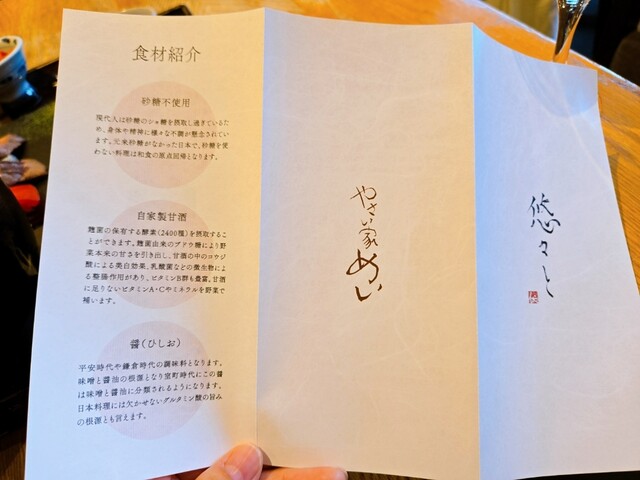 食材紹介
砂糖不使用
現代人は砂糖のショ糖を摂取し過ぎているた
め、身体や精神に様々な不調が懸念されてい
ます。元来砂糖がなかった日本で、砂糖を使
わない料理は和食の原点回帰となります。
自家製甘酒
麹菌の保有する酵素(2400種)を摂取するこ
とができます。麹菌由来のブドウ糖により野
菜本来の甘さを引き出し、甘酒の中のコウジ
酸による美白効果、乳酸菌などの微生物によ
る整腸作用があり、ビタミンB群も豊富。甘酒
に足りないビタミンA・Cやミネラルを野菜で
補います。
醤(ひしお)
平安時代や鎌倉時代の調味料となります。
味噌と醤油の根源となり室町時代にこの醤
は味噌と醤油に分類されるようになります。
日本料理には欠かせないグルタミン酸の旨み
の根源とも言えます。
やさい家めい
悠々と